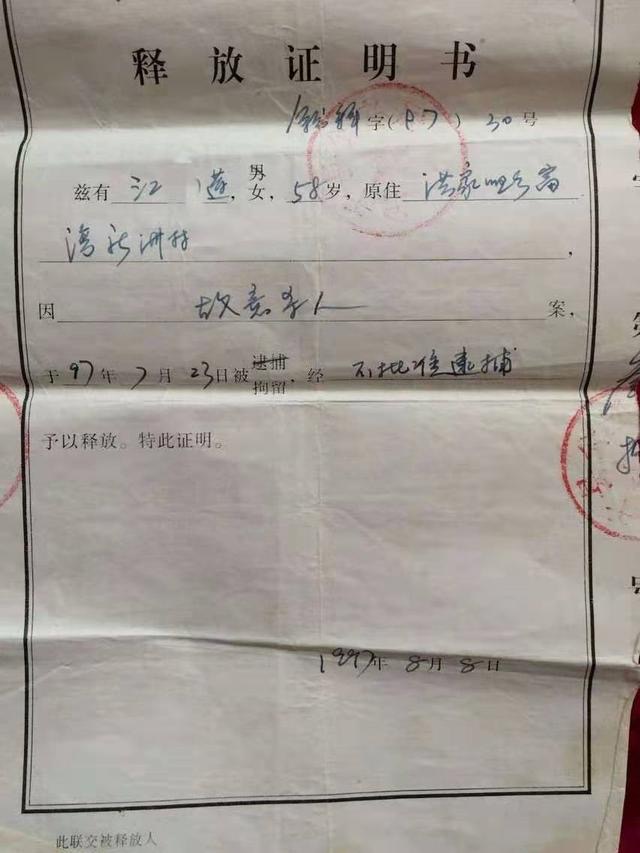 释放证明书
字(97)30号
兹有 江 莲,男女,58岁,原住 洪家咀乡富
湾新洲村,
因 故意杀人 案,
于97年7月23日被逮捕拘留,经 不批准逮捕
予以释放。特此证明。
1997年8月8日
此联交被释放人